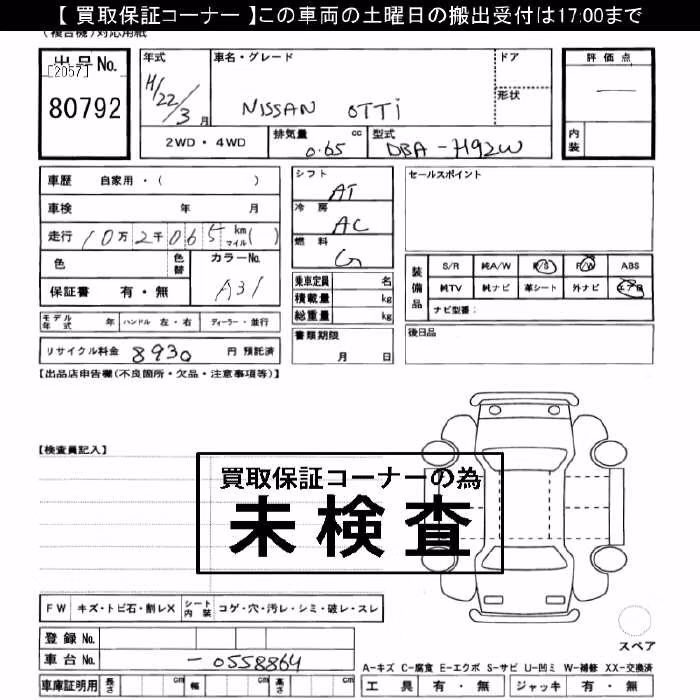 【 買取保証コーナー 】この車両の土曜日の搬出受付は17:00まで
(複合機)対応用紙
出品No.
[2057]
80792
年式
H/22/3 月
車名・グレード
NISSAN OTTI
ドア
形状
評価点
—
内装
2WD・4WD
排気量 cc
0.65
型式
DBA-H92W
車歴 自家用・( )
車検 年 月
走行 10万2千065 km マイル( )
色
色替
カラーNo.
A31
保証書 有・無
シフト
AT
冷房
AC
燃料
G
乗車定員 名
積載量 kg
総重量 kg
セールスポイント
装備品
S/R 純A/W P/S P/W ABS
純TV 純ナビ 革シート 外ナビ エアB
ナビ型番:
モデル年式 年 ハンドル 左・右 ディーラー・並行
リサイクル料金 8930 円 預託済
書類期限
月 日
後日品
【出品店申告欄(不良箇所・欠品・注意事項等)】
【検査員記入】
買取保証コーナーの為
未検査
FW キズ・トビ石・割レX シート内装 コゲ・穴・汚レ・シミ・破レ・スレ
登録No.
車台No. -0558864
スペア
A-キズ C-腐食 E-エクボ S-サビ U-凹ミ W-補修 XX-交換済
車庫証明用 長さ cm 幅 cm 高さ cm
工具 有・無 ジャッキ 有・無